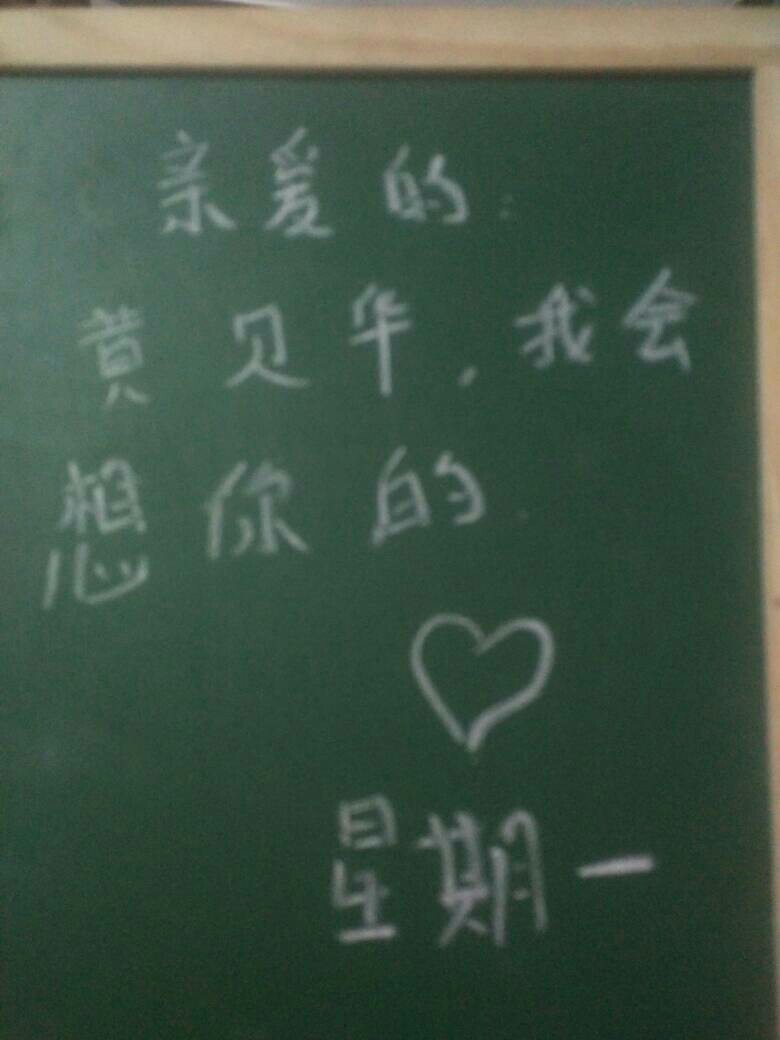 亲爱的:
黄贝华,我会
想你的.
星期一